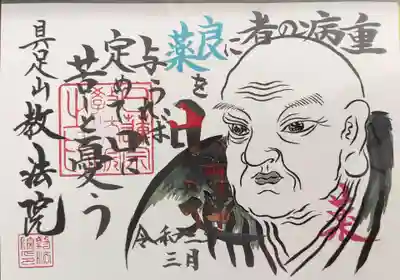 重病の者に
良薬を
与うれば
定めて口に
苦しと憂う
令和二
三月
具足山 教法院